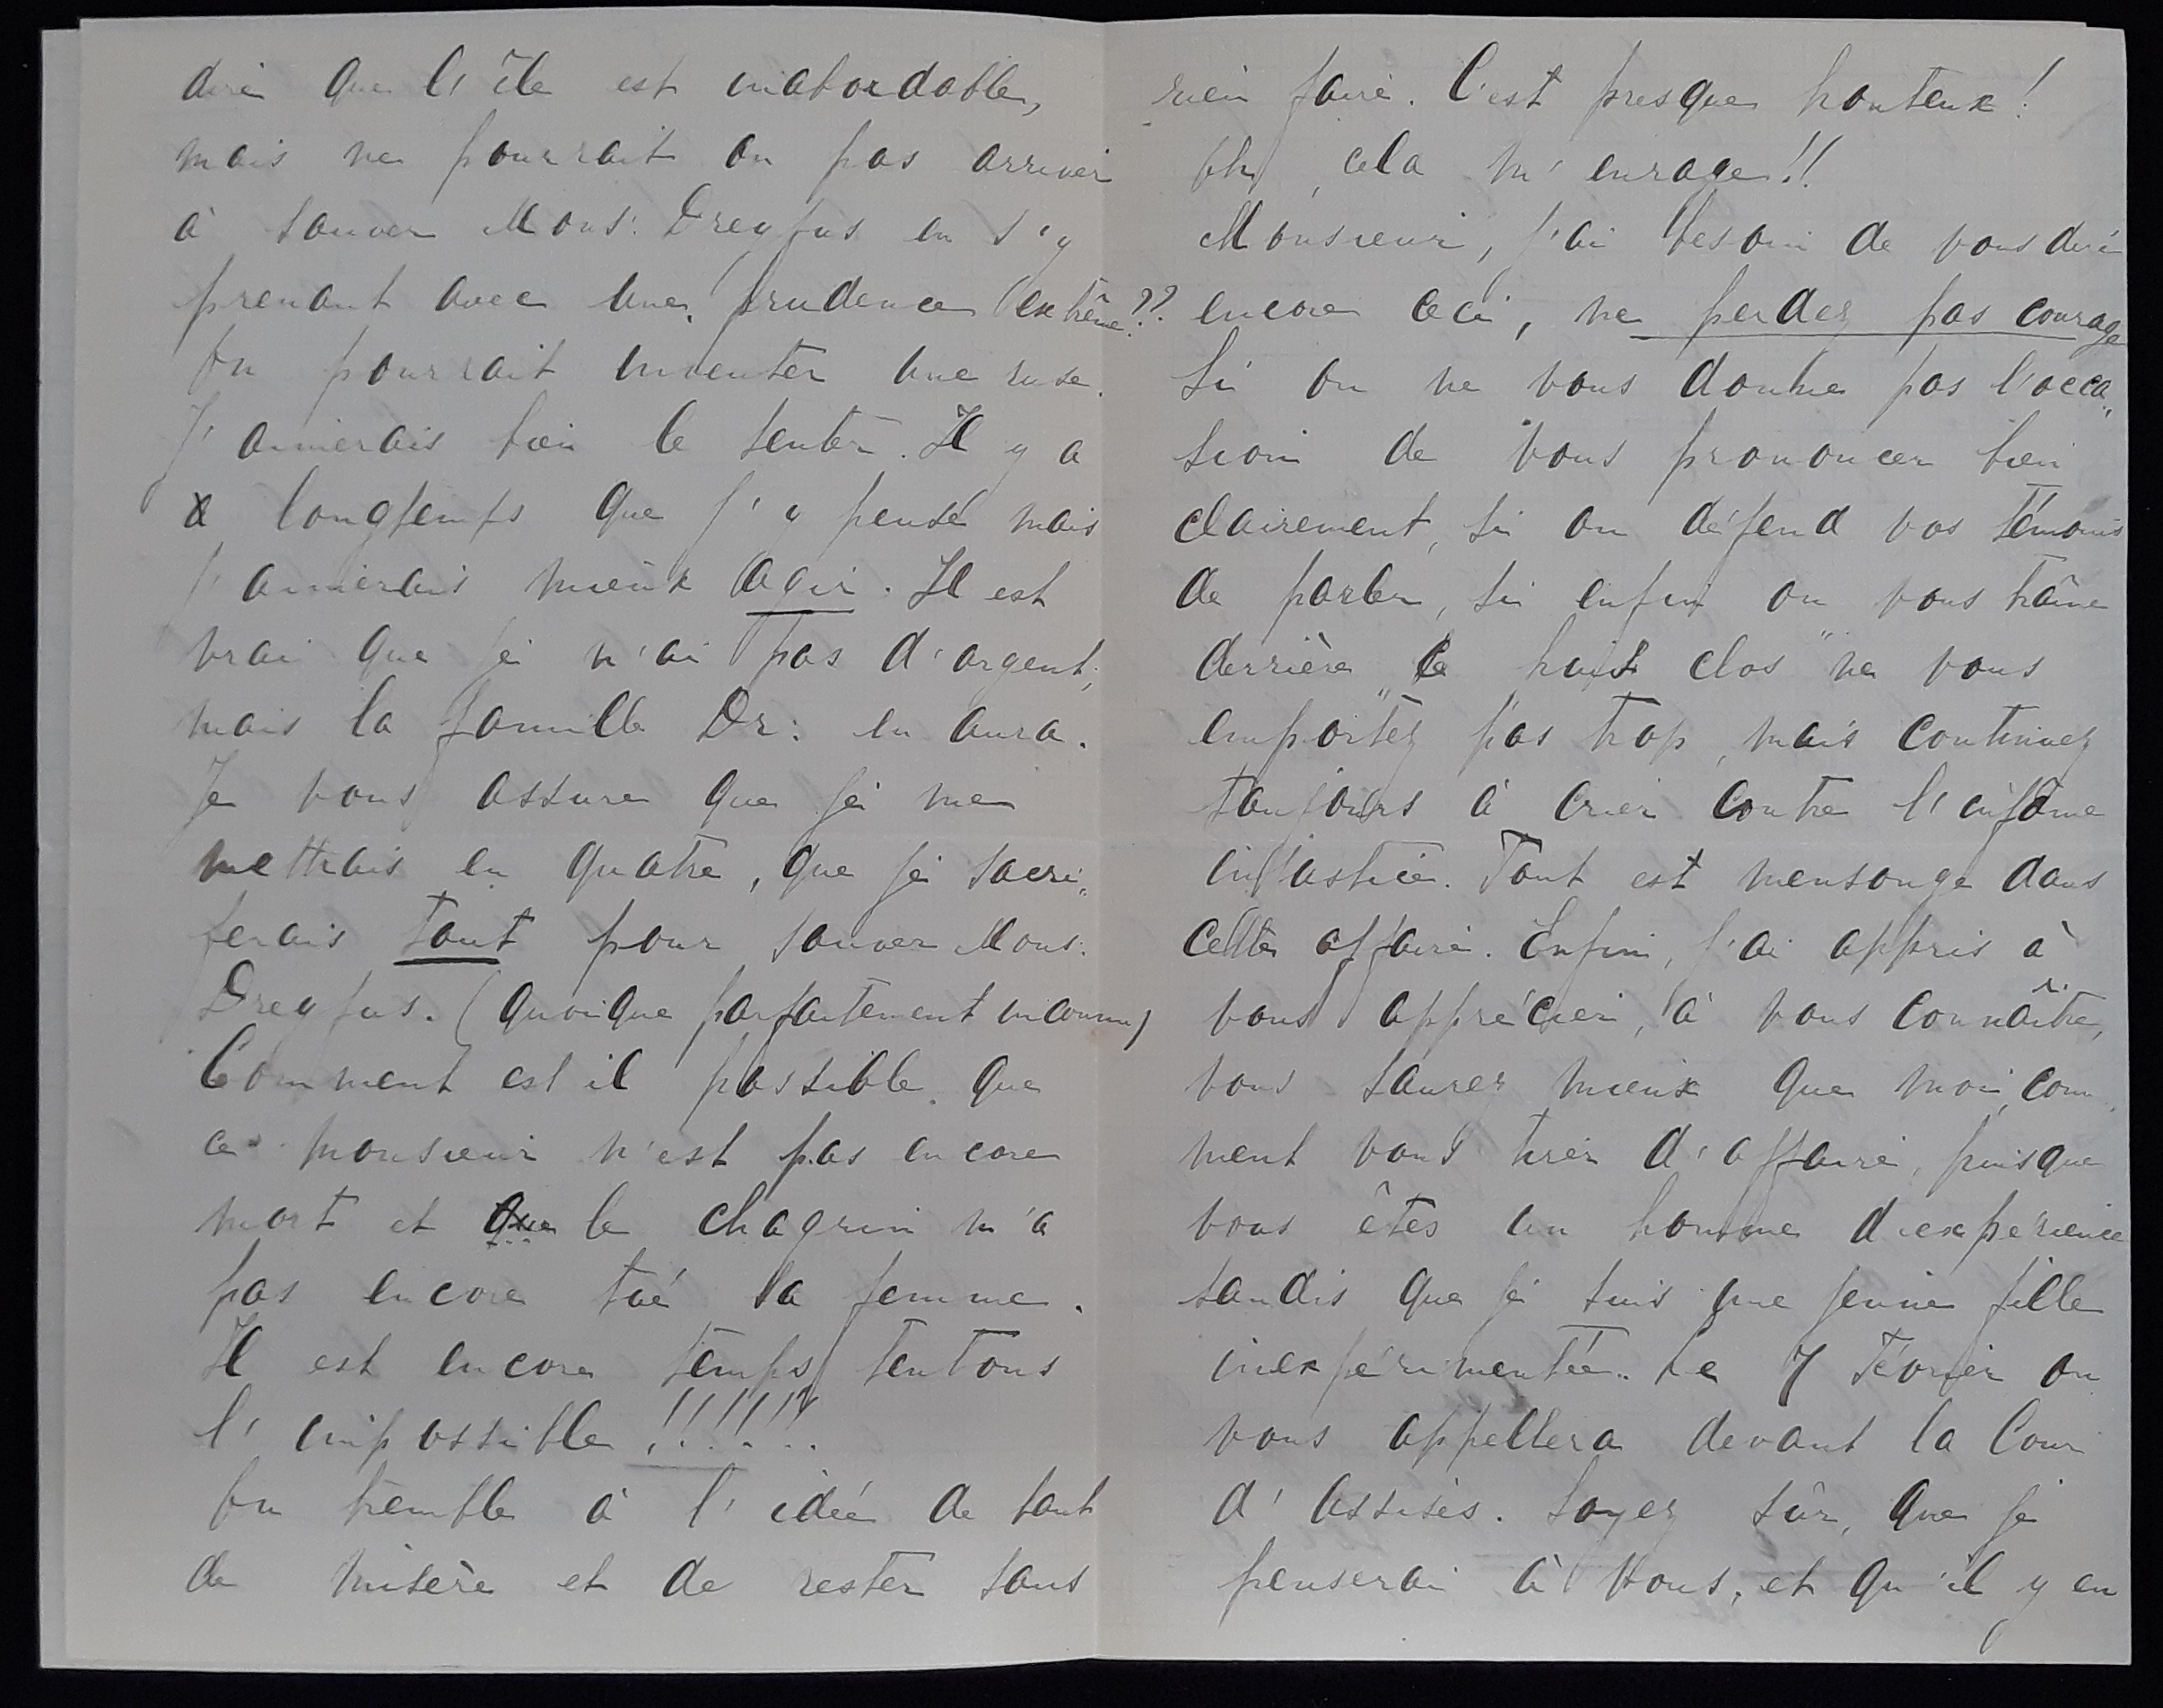 dire que l'île est inabordable,
mais ne pourrait on pas arriver
à sauver Mons: Dreyfus en s'y
prenant avec une prudence extrême??
On pourrait inventer une ruse.
J'aimerais bien le tenter. Il y a
longtemps que j'y pense mais
j'aimerais mieux agir. Il est
vrai que je n'ai pas d'argent;
mais la famille Dr: en aura.
Je vous assure que je me
mettrais en quatre, que je sacri„
ferais tout pour sauver Mons:
Dreyfus. (quoique parfaitement inconnu)
Comment est il possible que
ce monsieur n'est pas encore
mort et que le chagrin n'a
pas encore tué sa femme.
Il est encore temps, tentons
l'impossible !!!!!!
On tremble à l'idée de tant
de misère et de rester sans
rien faire. C'est presque honteux!
Oh, cela m'enrage!!
Monsieur, j'ai besoin de vous dire
encore ceci, ne perdez pas courage
Si on ne vous donne pas l'occa„
sion de vous prononcer bien
clairement, si on défend vos témoins
de parler, si enfin on vous traîne
derrière „le huis clos" ne vous
emportez pas trop, mais continuez
toujours à crier contre l'infâme
injustice. Tout est mensonge dans
cette affaire. Enfin, j'ai appris à
vous apprécier, à vous connaître,
vous saurez mieux que moi, com„
ment vous tirer d'affaire, puisque
vous êtes un homme d'expérience
tandis que je suis une jeune fille
inexpérimentée. Le 7 Février on
vous appellera devant la Cour
d'Assises. Soyez sûr, que je
penserai à vous, et qu'il y en